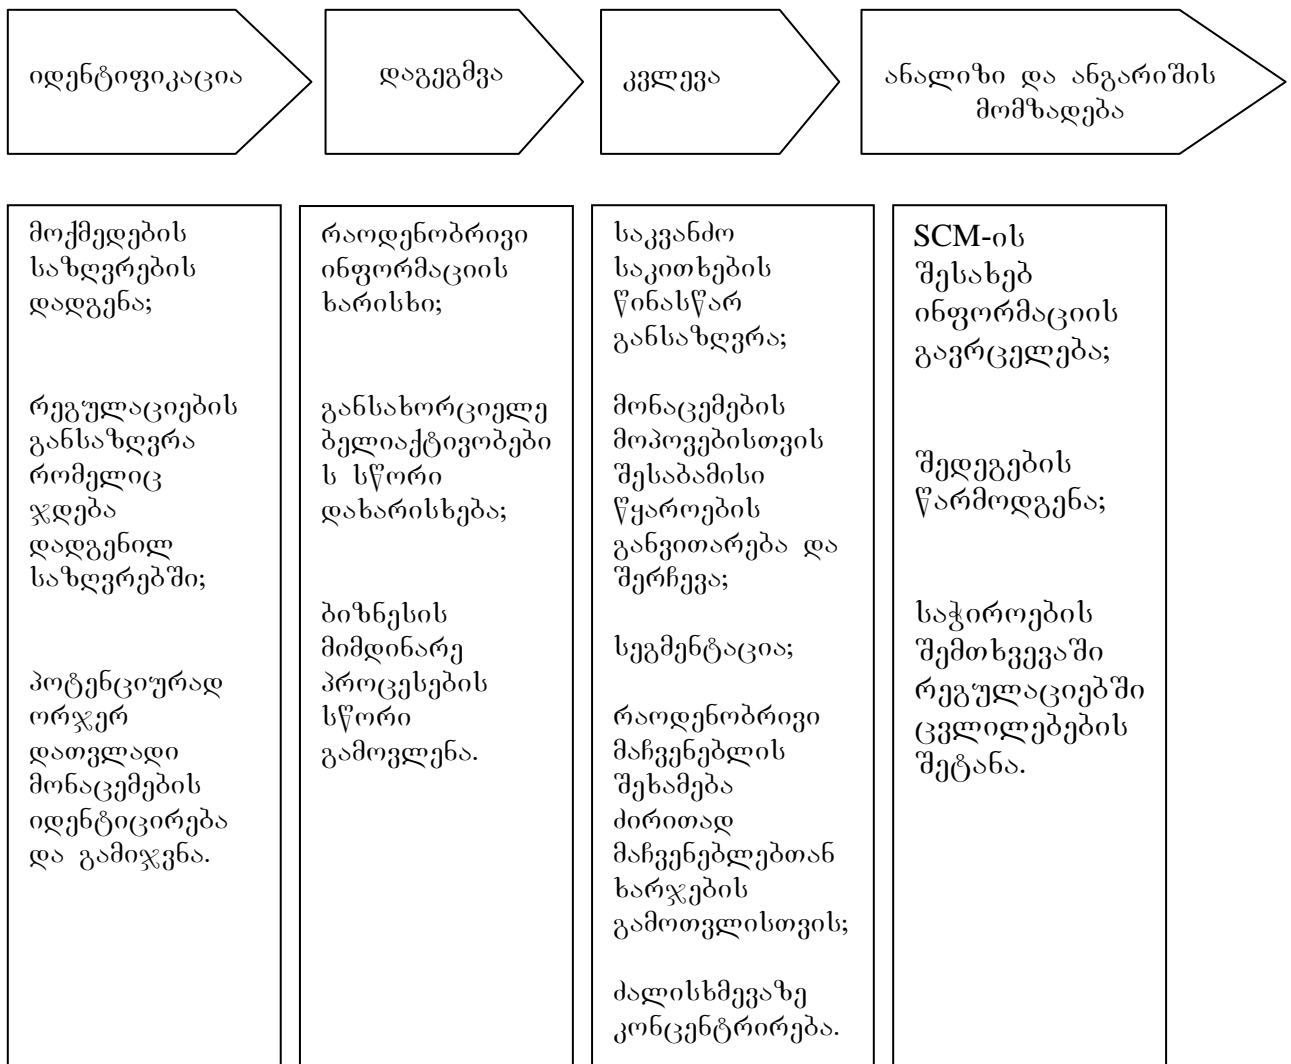 იდენტიფიკაცია
დაგეგმვა
კვლევა
ანალიზი და ანგარიშის
მომზადება
მოქმედების
საზღვრების
დადგენა;
რეგულაციების
განსაზღვრა
რომელიც
ჯდება
დადგენილ
საზღვრებში;
პოტენციურად
ორჯერ
დათვლადი
მონაცემების
იდენტიცირება
და გამიჯვნა.
რაოდენობრივი
ინფორმაციის
ხარისხი;
განსახორციელე
ბელიაქტივობები
ს სწორი
დახარისხება;
ბიზნესის
მიმდინარე
პროცესების
სწორი
გამოვლენა.
საკვანძო
საკითხების
წინასწარ
განსაზღვრა;
მონაცემების
მოპოვებისთვის
შესაბამისი
წყაროების
განვითარება და
შერჩევა;
სეგმენტაცია;
რაოდენობრივი
მაჩვენებლის
შეხამება
ძირითად
მაჩვენებლებთან
ხარჯების
გამოთვლისთვის;
ძალისხმევაზე
კონცენტრირება.
SCM-ის
შესახებ
ინფორმაციის
გავრცელება;
შედეგების
წარმოდგენა;
საჭიროების
შემთხვევაში
რეგულაციებში
ცვლილებების
შეტანა.